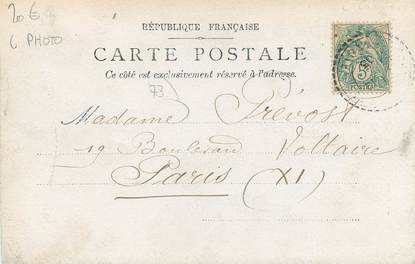 20 €
6 PHOTO
RÉPUBLIQUE FRANÇAISE
CARTE POSTALE
Ce côté est exclusivement réservé à l'adresse.
73
Madame Prévost
19 Boulevard Voltaire
Paris (XI)
5
POSTES